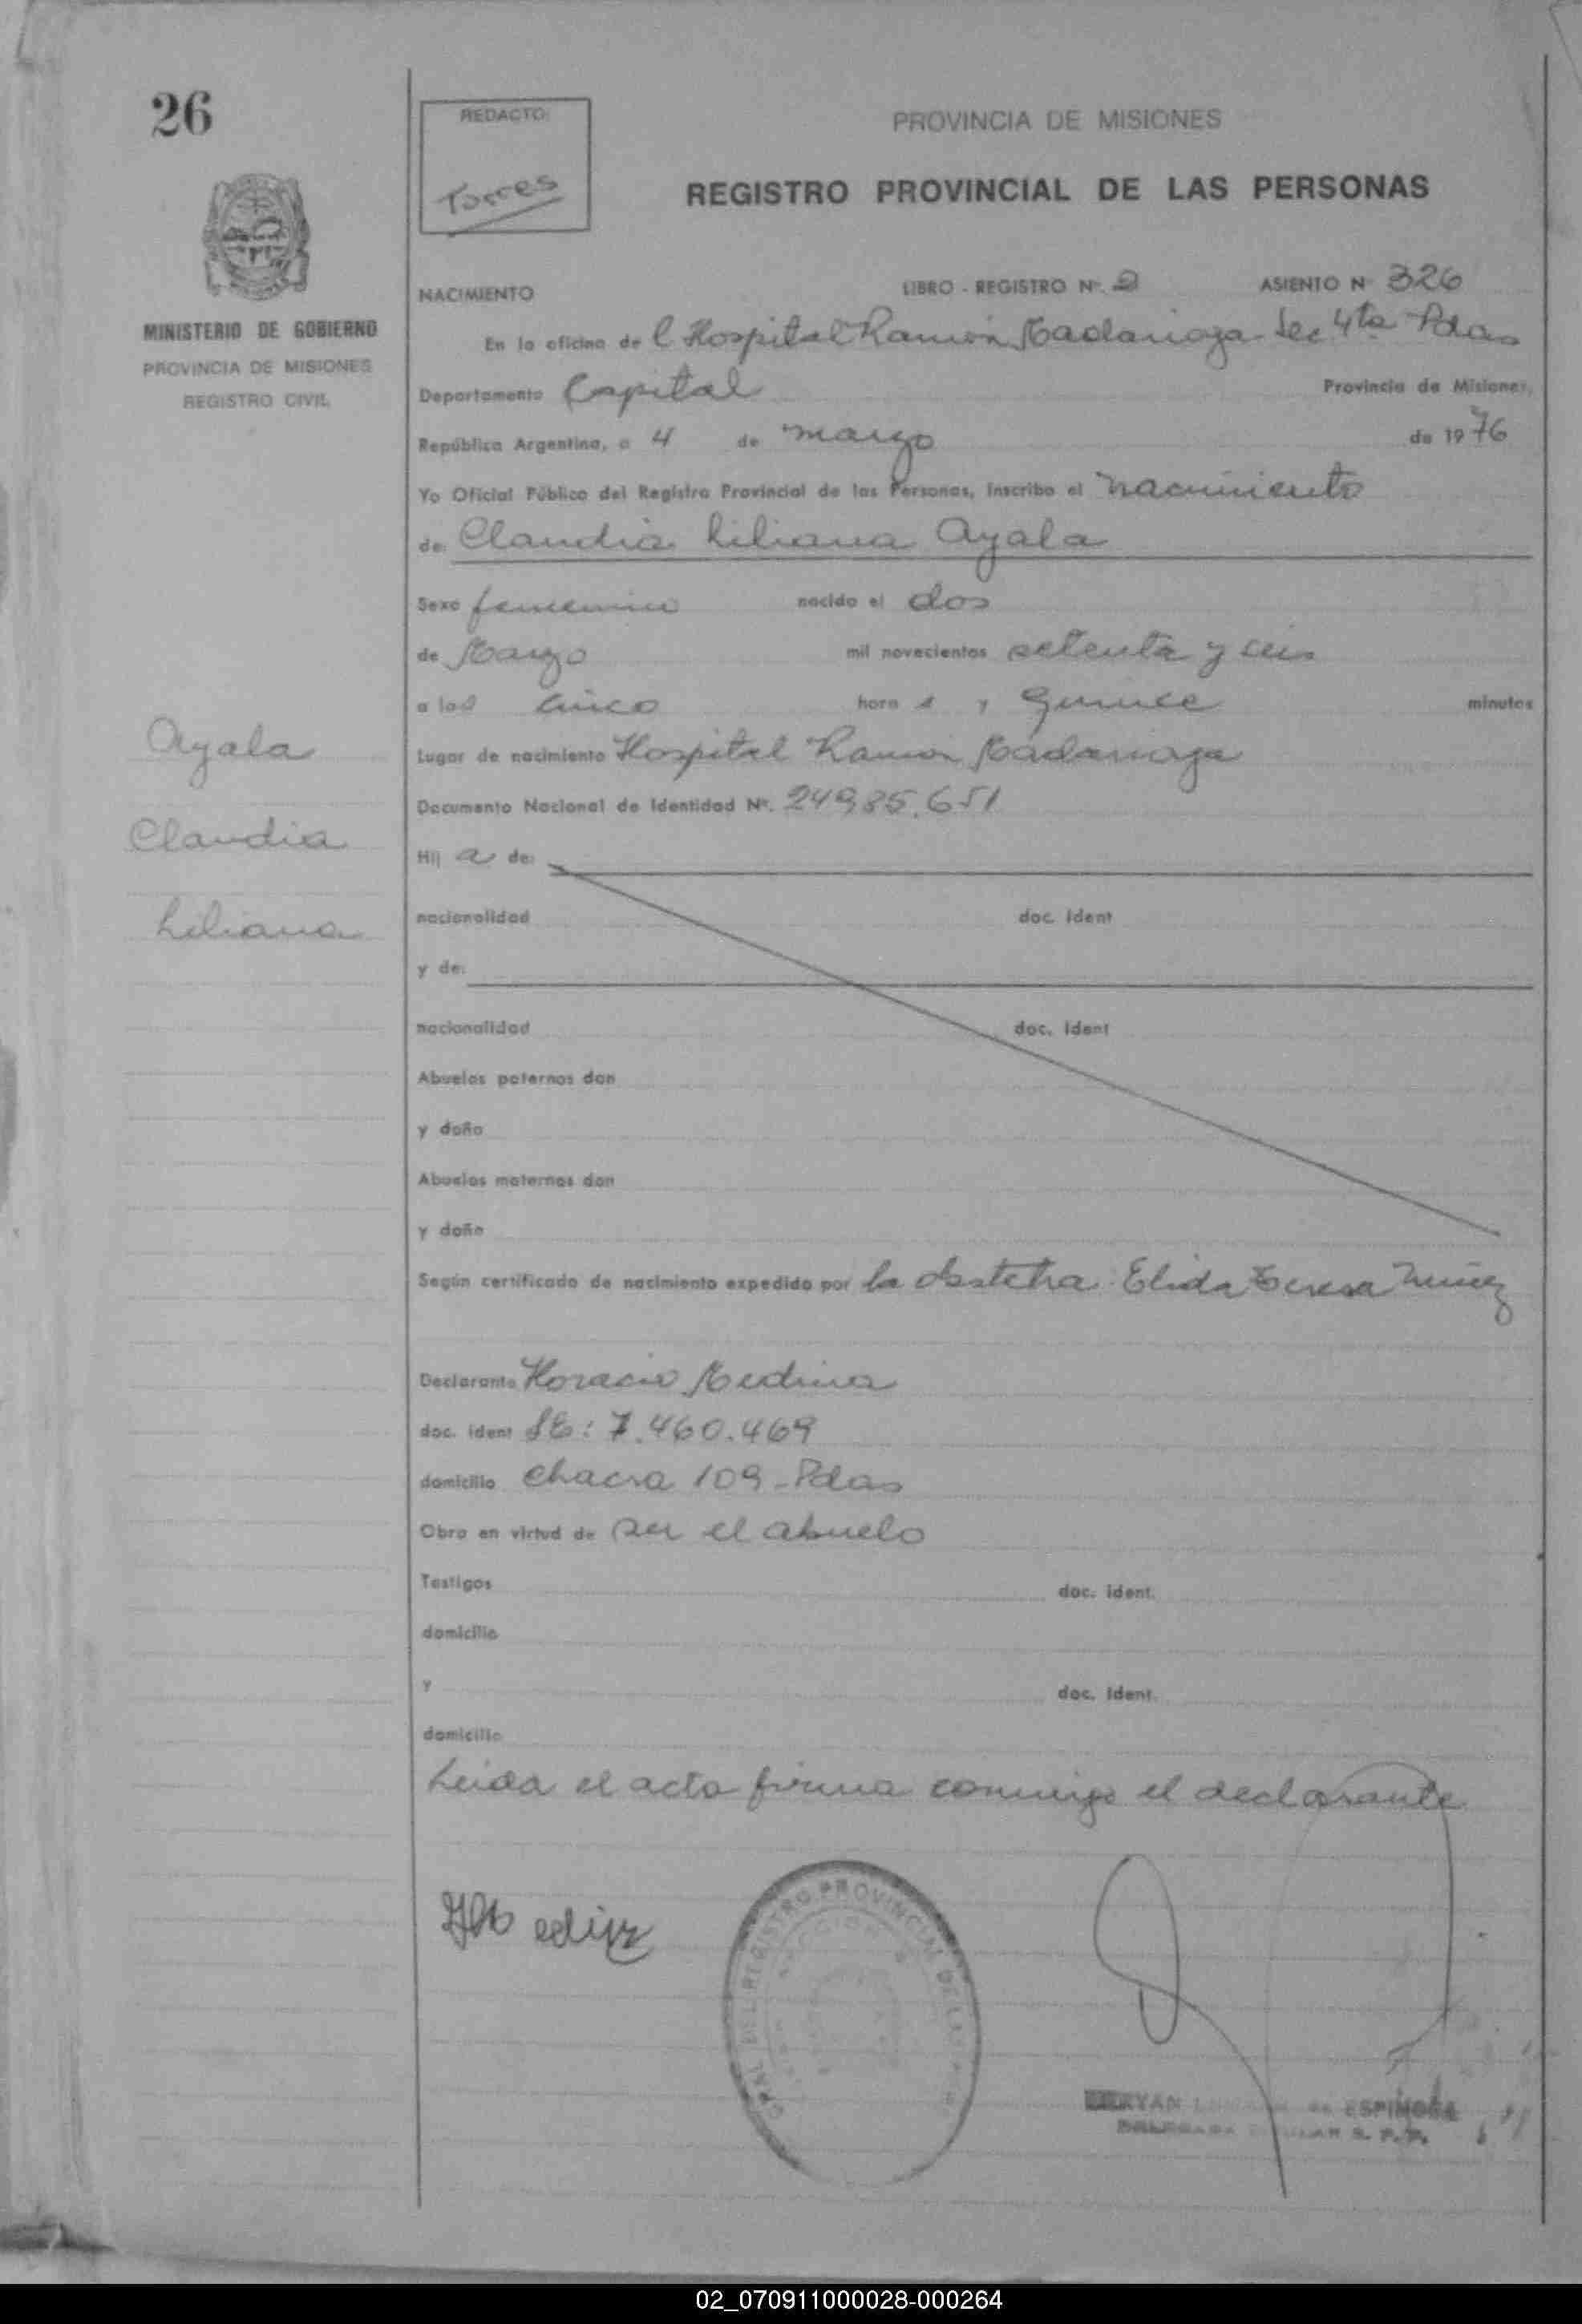 26
REDACTO:
Torres
PROVINCIA DE MISIONES
REGISTRO PROVINCIAL DE LAS PERSONAS
MINISTERIO DE GOBIERNO
PROVINCIA DE MISIONES
REGISTRO CIVIL
NACIMIENTO LIBRO - REGISTRO Nº. 2 ASIENTO Nº 326
En la oficina de l Hospital Ramón Madariaga Sec 4ta Pdas
Departamento Capital Provincia de Misiones,
República Argentina, a 4 de marzo de 1976
Yo Oficial Público del Registro Provincial de las Personas, inscribo el nacimiento
de: Claudia Liliana Ayala
Sexo femenino nacido el dos
de Marzo mil novecientos setenta y seis
a las cinco hora s y quince minutos
Lugar de nacimiento Hospital Ramón Madariaga
Documento Nacional de Identidad Nº. 24985.651
Ayala
Claudia
Liliana
Hij a de:
nacionalidad doc. ident
y de:
nacionalidad doc. ident
Abuelos paternos don
y doña
Abuelos maternos don
y doña
Según certificado de nacimiento expedido por la obstetra Elida Teresa Nuñez
Declarante Horacio Medina
doc. ident LE: 7.460.469
domicilio Chacra 109 - Pdas
Obra en virtud de ser el abuelo
Testigos doc. ident.
domicilio
y doc. ident.
domicilio
Leida el acta firma conmigo el declarante
REGISTRO PROVINCIAL DE
ESPINOSA
02_070911000028-000264